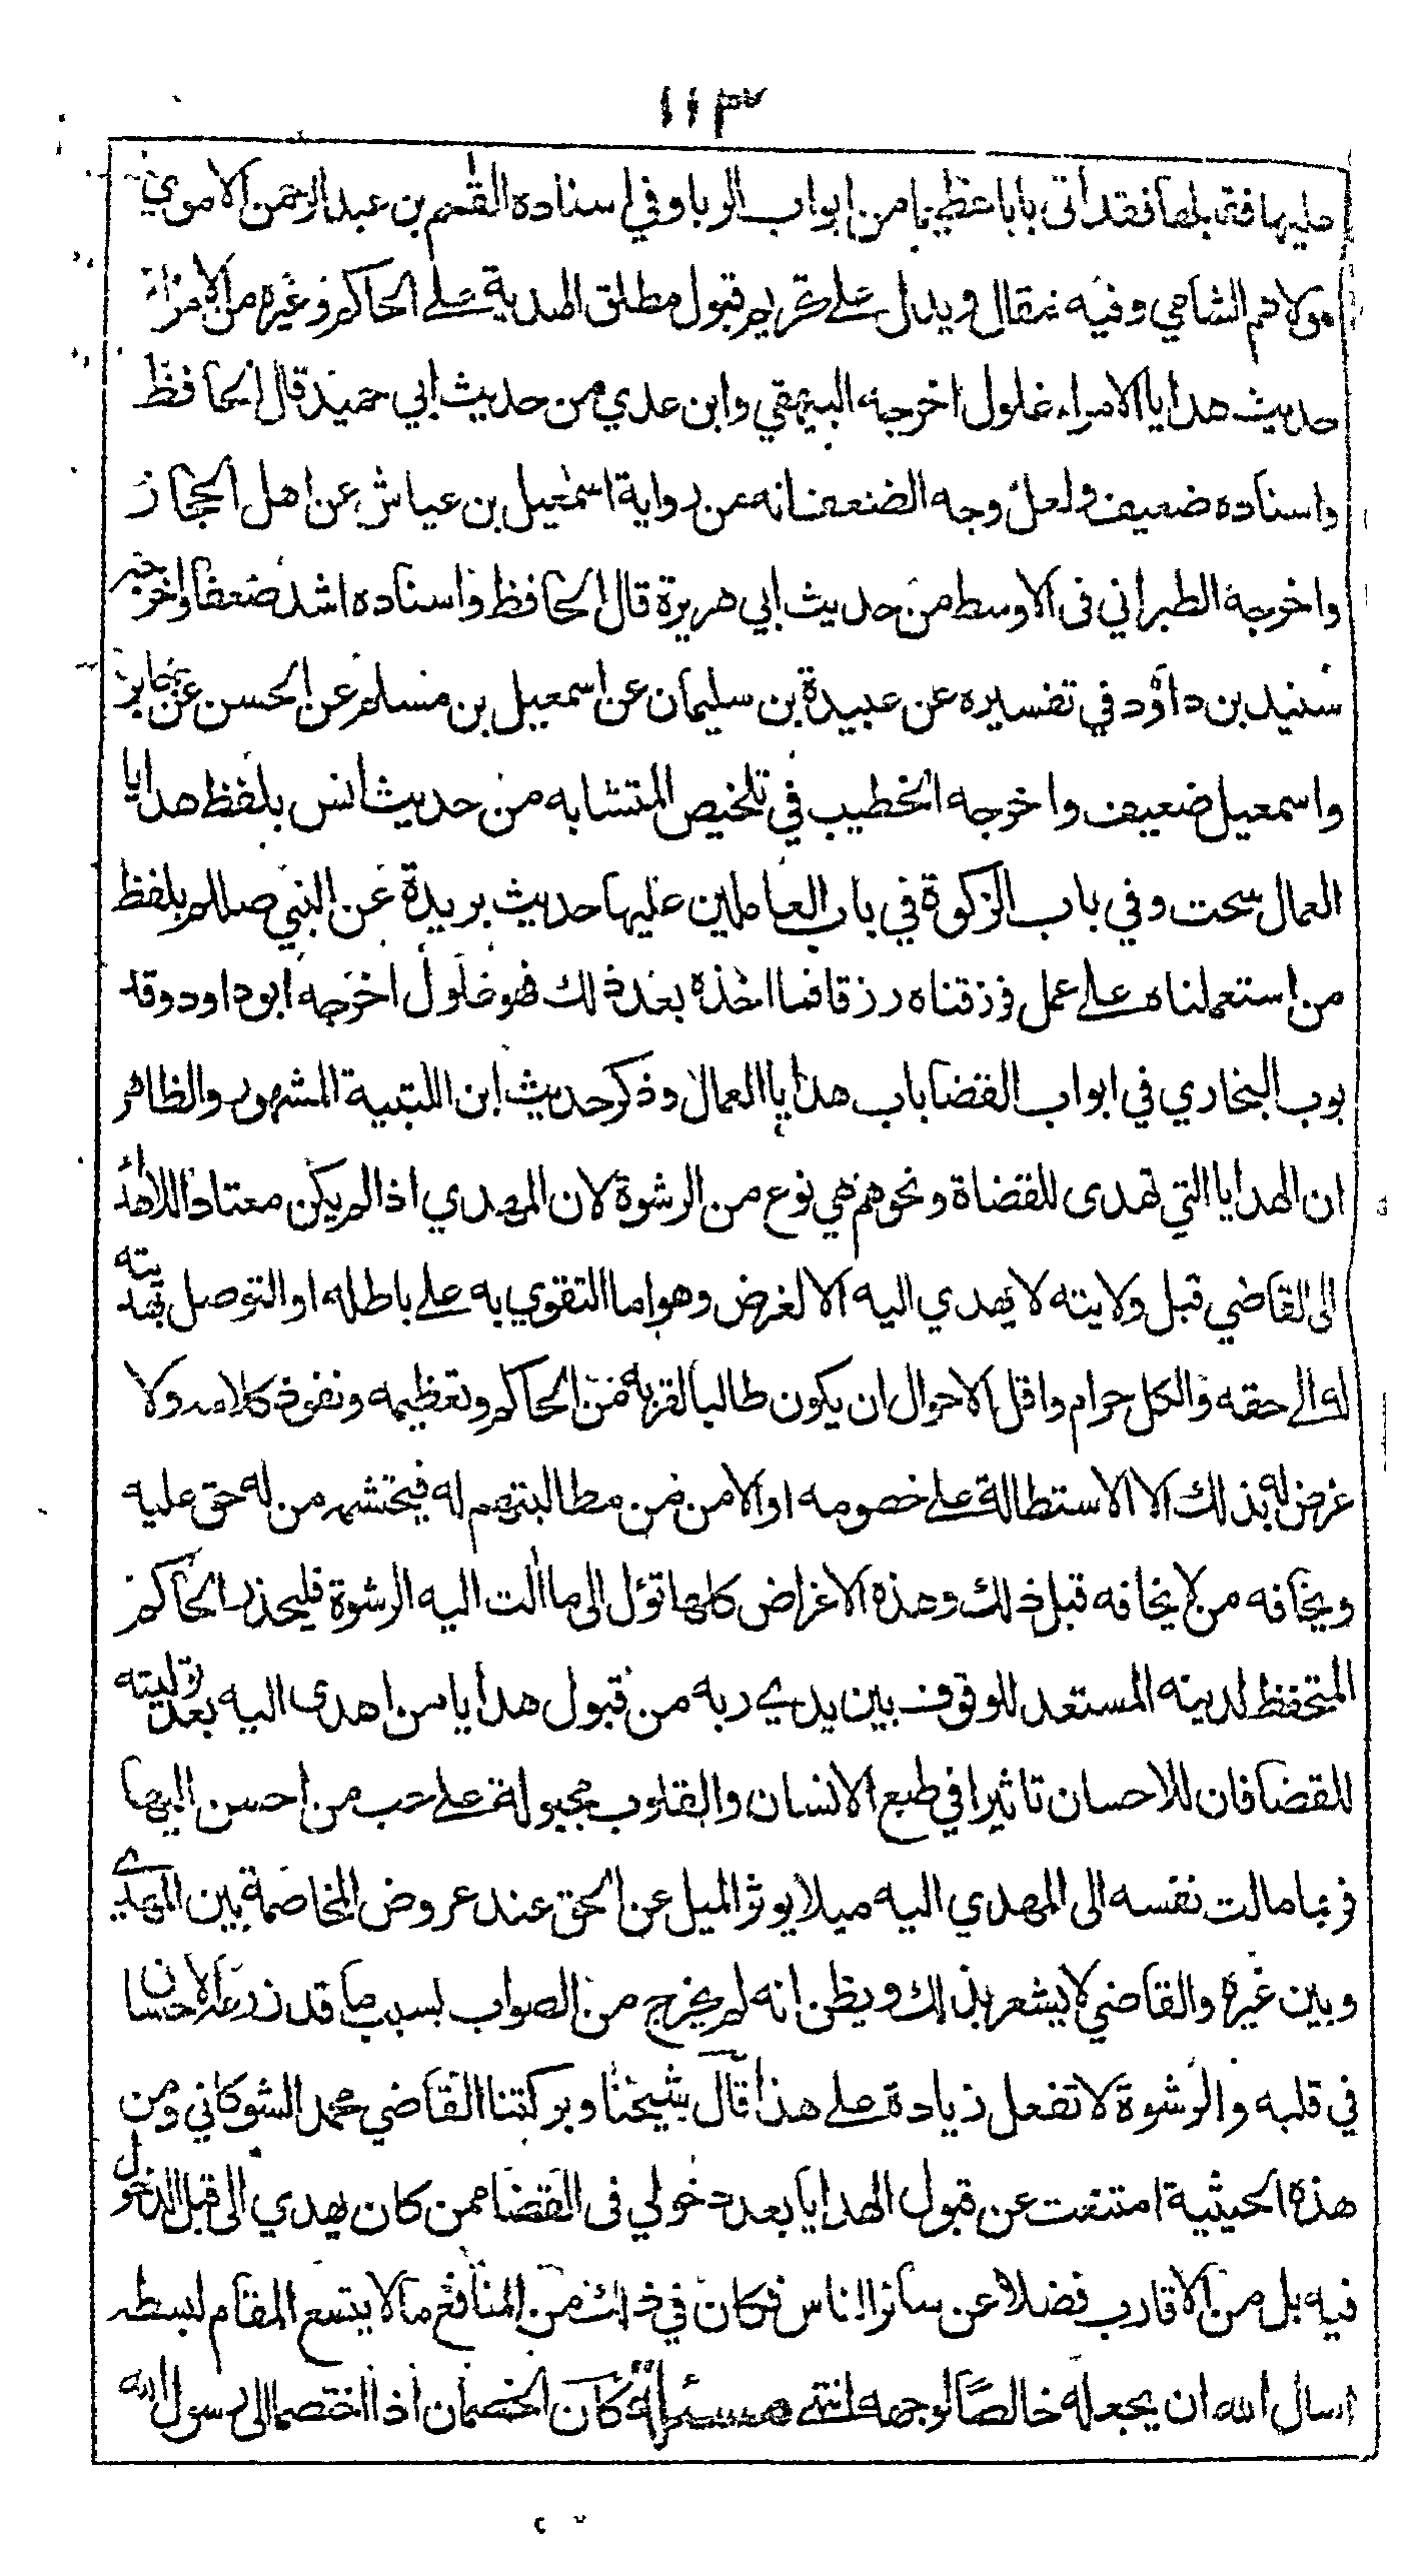 ١١٣
عليها فقبلها فقد اتى بابا عظيما من ابواب الربا وفي اسناده القسم بن عبد الرحمن الاموي
مولاهم الشامي وفيه مقال ويدل على تحريم قبول مطلق الهدية على الحاكم وغيره من الامراء
حديث هدايا الامراء غلول اخرجه البيهقي وابن عدي من حديث ابي حميد قال الحافظ
واسناده ضعيف ولعل وجه الضعف انه من رواية اسمعيل بن عياش عن اهل الحجاز
واخرجه الطبراني في الاوسط من حديث ابي هريرة قال الحافظ واسناده اشد ضعفا واخرجه
سنيد بن داؤد في تفسيره عن عبيدة بن سليمان عن اسمعيل بن مسلم عن الحسن عن جابر
واسمعيل ضعيف واخرجه الخطيب في تلخيص المتشابه من حديث انس بلفظ هدايا
العمال سحت وفي باب الزكوة في باب العاملين عليها حديث بريدة عن النبي صللم بلفظ
من استعملناه على عمل فرزقناه رزقا فما اخذه بعد ذلك فهو غلول اخرجه ابو داود وقد
بوب البخاري في ابواب القضا باب هدايا العمال وذكر حديث ابن اللتبية المشهور والظاهر
ان الهدايا التي تهدى للقضاة ونحوهم هي نوع من الرشوة لان المهدي اذا لم يكن معتادا للاهداء
الى القاضي قبل ولايته لا يهدي اليه الا لغرض وهو اما التقوي به على باطله او التوصل بهديته
له الى حقه والكل حرام واقل الاحوال ان يكون طالبا لقربه من الحاكم وتعظيمه ونفوذ كلامه ولا
غرض له بذلك الا الاستطالة على خصومه او الامن من مطالبتهم له فيحتشم من له حق عليه
ويخافه من لا يخافه قبل ذلك وهذه الاغراض كلها تؤل الى ما الت اليه الرشوة فليحذر الحاكم
المتحفظ لدينه المستعد للوقوف بين يدي ربه من قبول هدايا من اهدى اليه بعد توليته
للقضا فان للاحسان تاثيرا في طبع الانسان والقلوب مجبولة على حب من احسن اليها
فربما مالت نفسه الى المهدي اليه ميلا يوثر الميل عن الحق عند عروض المخاصمة بين المهدي
وبين غيره والقاضي لا يشعر بذلك ويظن انه لم يخرج من الصواب بسبب ما قد زرعه الاحسان
في قلبه والرشوة لا تفعل زيادة على هذا قال شيخنا وبركتنا القاضي محمد الشوكاني ومن
هذه الحيثية امتنعت عن قبول الهدايا بعد دخولي في القضا ممن كان يهدي الي قبل الدخول
فيه بل من الاقارب فضلا عن سائر الناس فكان في ذلك من المنافع ما لا يتسع المقام لبسطه
اسال الله ان يجعله خالصًا لوجهه انتهى مسئلة كان الخصمان اذا اختصما الى رسول الله